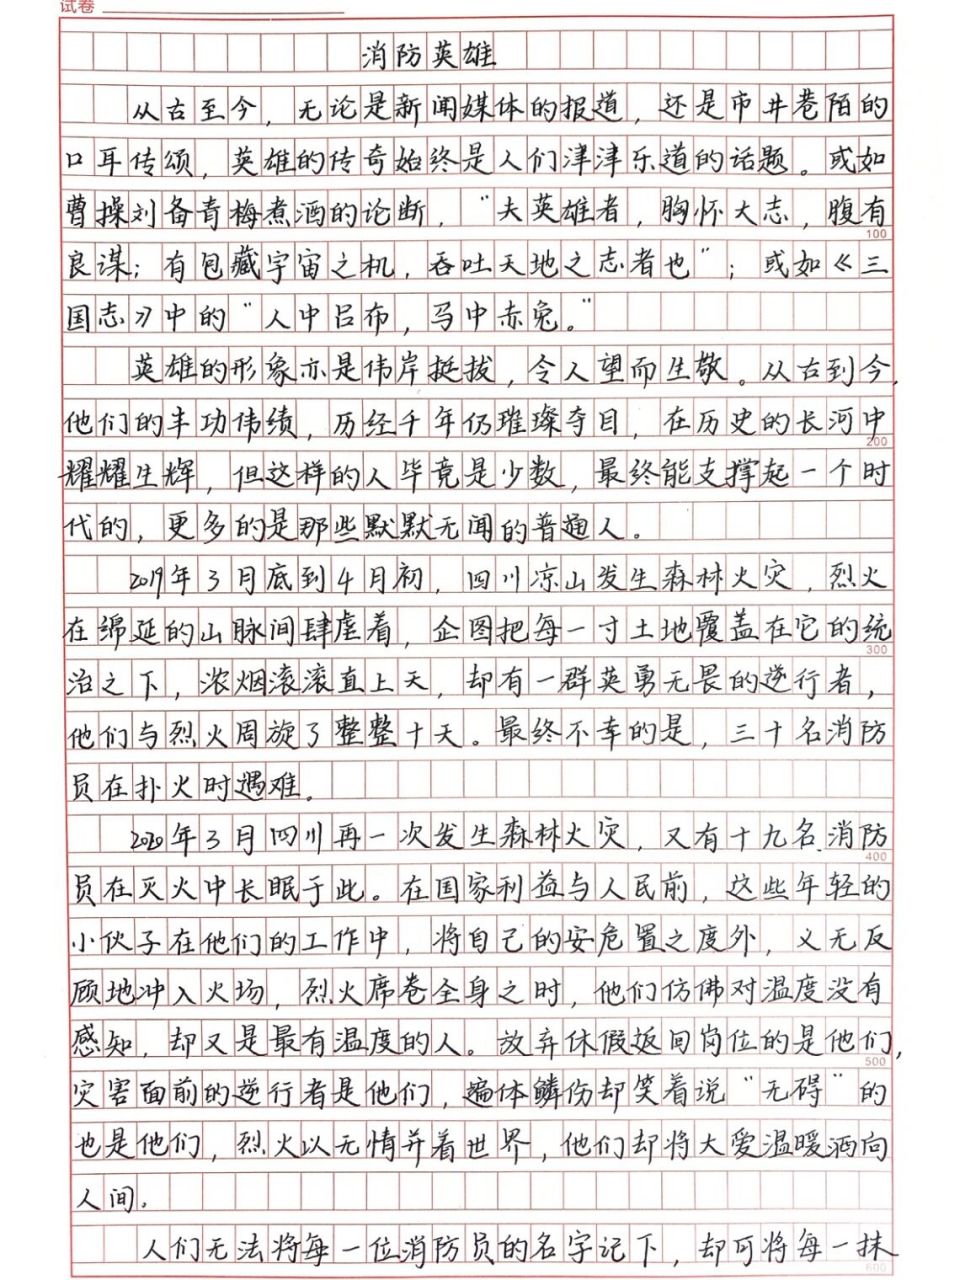 试卷
消防英雄
从古至今，无论是新闻媒体的报道，还是市井巷陌的
口耳传颂，英雄的传奇始终是人们津津乐道的话题。或如
曹操刘备青梅煮酒的论断，“夫英雄者，胸怀大志，腹有
100
良谋；有包藏宇宙之机，吞吐天地之志者也”；或如《三
国志》中的“人中吕布，马中赤兔。”
英雄的形象亦是伟岸挺拔，令人望而生敬。从古到今，
他们的丰功伟绩，历经千年仍璀璨夺目，在历史的长河中
200
耀耀生辉，但这样的人毕竟是少数，最终能支撑起一个时
代的，更多的是那些默默无闻的普通人。
2019年3月底到4月初，四川凉山发生森林火灾，烈火
在绵延的山脉间肆虐着，企图把每一寸土地覆盖在它的统
300
治之下，浓烟滚滚直上天，却有一群英勇无畏的逆行者，
他们与烈火周旋了整整十天。最终不幸的是，三十名消防
员在扑火时遇难。
2020年3月四川再一次发生森林火灾，又有十九名消防
400
员在灭火中长眠于此。在国家利益与人民前，这些年轻的
小伙子在他们的工作中，将自己的安危置之度外，义无反
顾地冲入火场，烈火席卷全身之时，他们仿佛对温度没有
感知，却又是最有温度的人。放弃休假返回岗位的是他们，
500
灾害面前的逆行者是他们，遍体鳞伤却笑着说“无碍”的
也是他们，烈火以无情弃着世界，他们却将大爱温暖洒向
人间。
人们无法将每一位消防员的名字记下，却可将每一抹
600